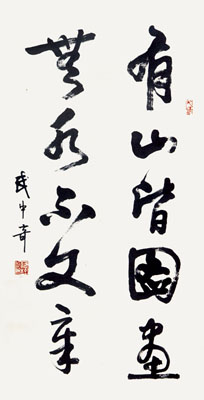 有山皆图画
无水不文章
武中奇